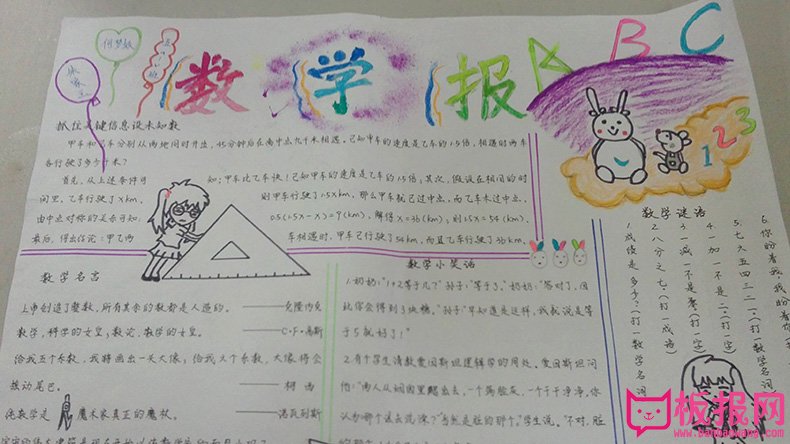 何梦姣
数
学
报
A B C
1 2 3
抓住关键信息设未知数
甲车和乙车分别从两地同时开出,45分钟后在离中点九千米相遇。已知甲车的速度是乙车的1.5倍,相遇时两车
各行驶了多少千米?
首先,从上述条件可
知:甲车比乙车快!已知甲车的速度是乙车的1.5倍;其次,假设在相同的时
间里,乙车行驶了xkm,
则甲车行驶了1.5xkm,那么甲车就已过中点,而乙车未过中点,
由中点对称的关系可知:
0.5(1.5x-x)=9(km),解得x=36(km),则1.5x=54(km),
最后,得出结论:甲乙两
车相遇时,甲车已行驶了54km,而且乙车行驶了36km。
数学名言
上帝创造了整数,所有其余的数都是人造的。——克隆内克
数学,科学的女皇;数论,数学的女皇。——C·F·高斯
给我五个系数,我将画出一头大像;给我六个系数,大像将会
摇动尾巴。——柯西
纯数学是魔术家真正的魔杖。——诺瓦列斯
数学小笑话
1.奶奶:“1+2等于几?”孙子:“等于3。”奶奶:“答对了,因
此你会得到3块糖。”孙子:“早知道是这样,我就说是等
于5就好了!”
2.有个学生请教爱因斯坦逻辑学的用处,爱因斯坦问
他:“两人从烟囱里爬出去,一个满脸灰,一个干干净净,你
认为哪个该去洗澡?”“当然是脏的那个。”学生说。“不对,脏
数学谜语
1.成绩是多少?(打一数学名词
2.八分之七(打一成语)
3.一减一不是零(打一字)
4.一加一不是二(打一字)
5.七六五四三二一(打一数学名词
6.你盼着我,我盼着你
板报网